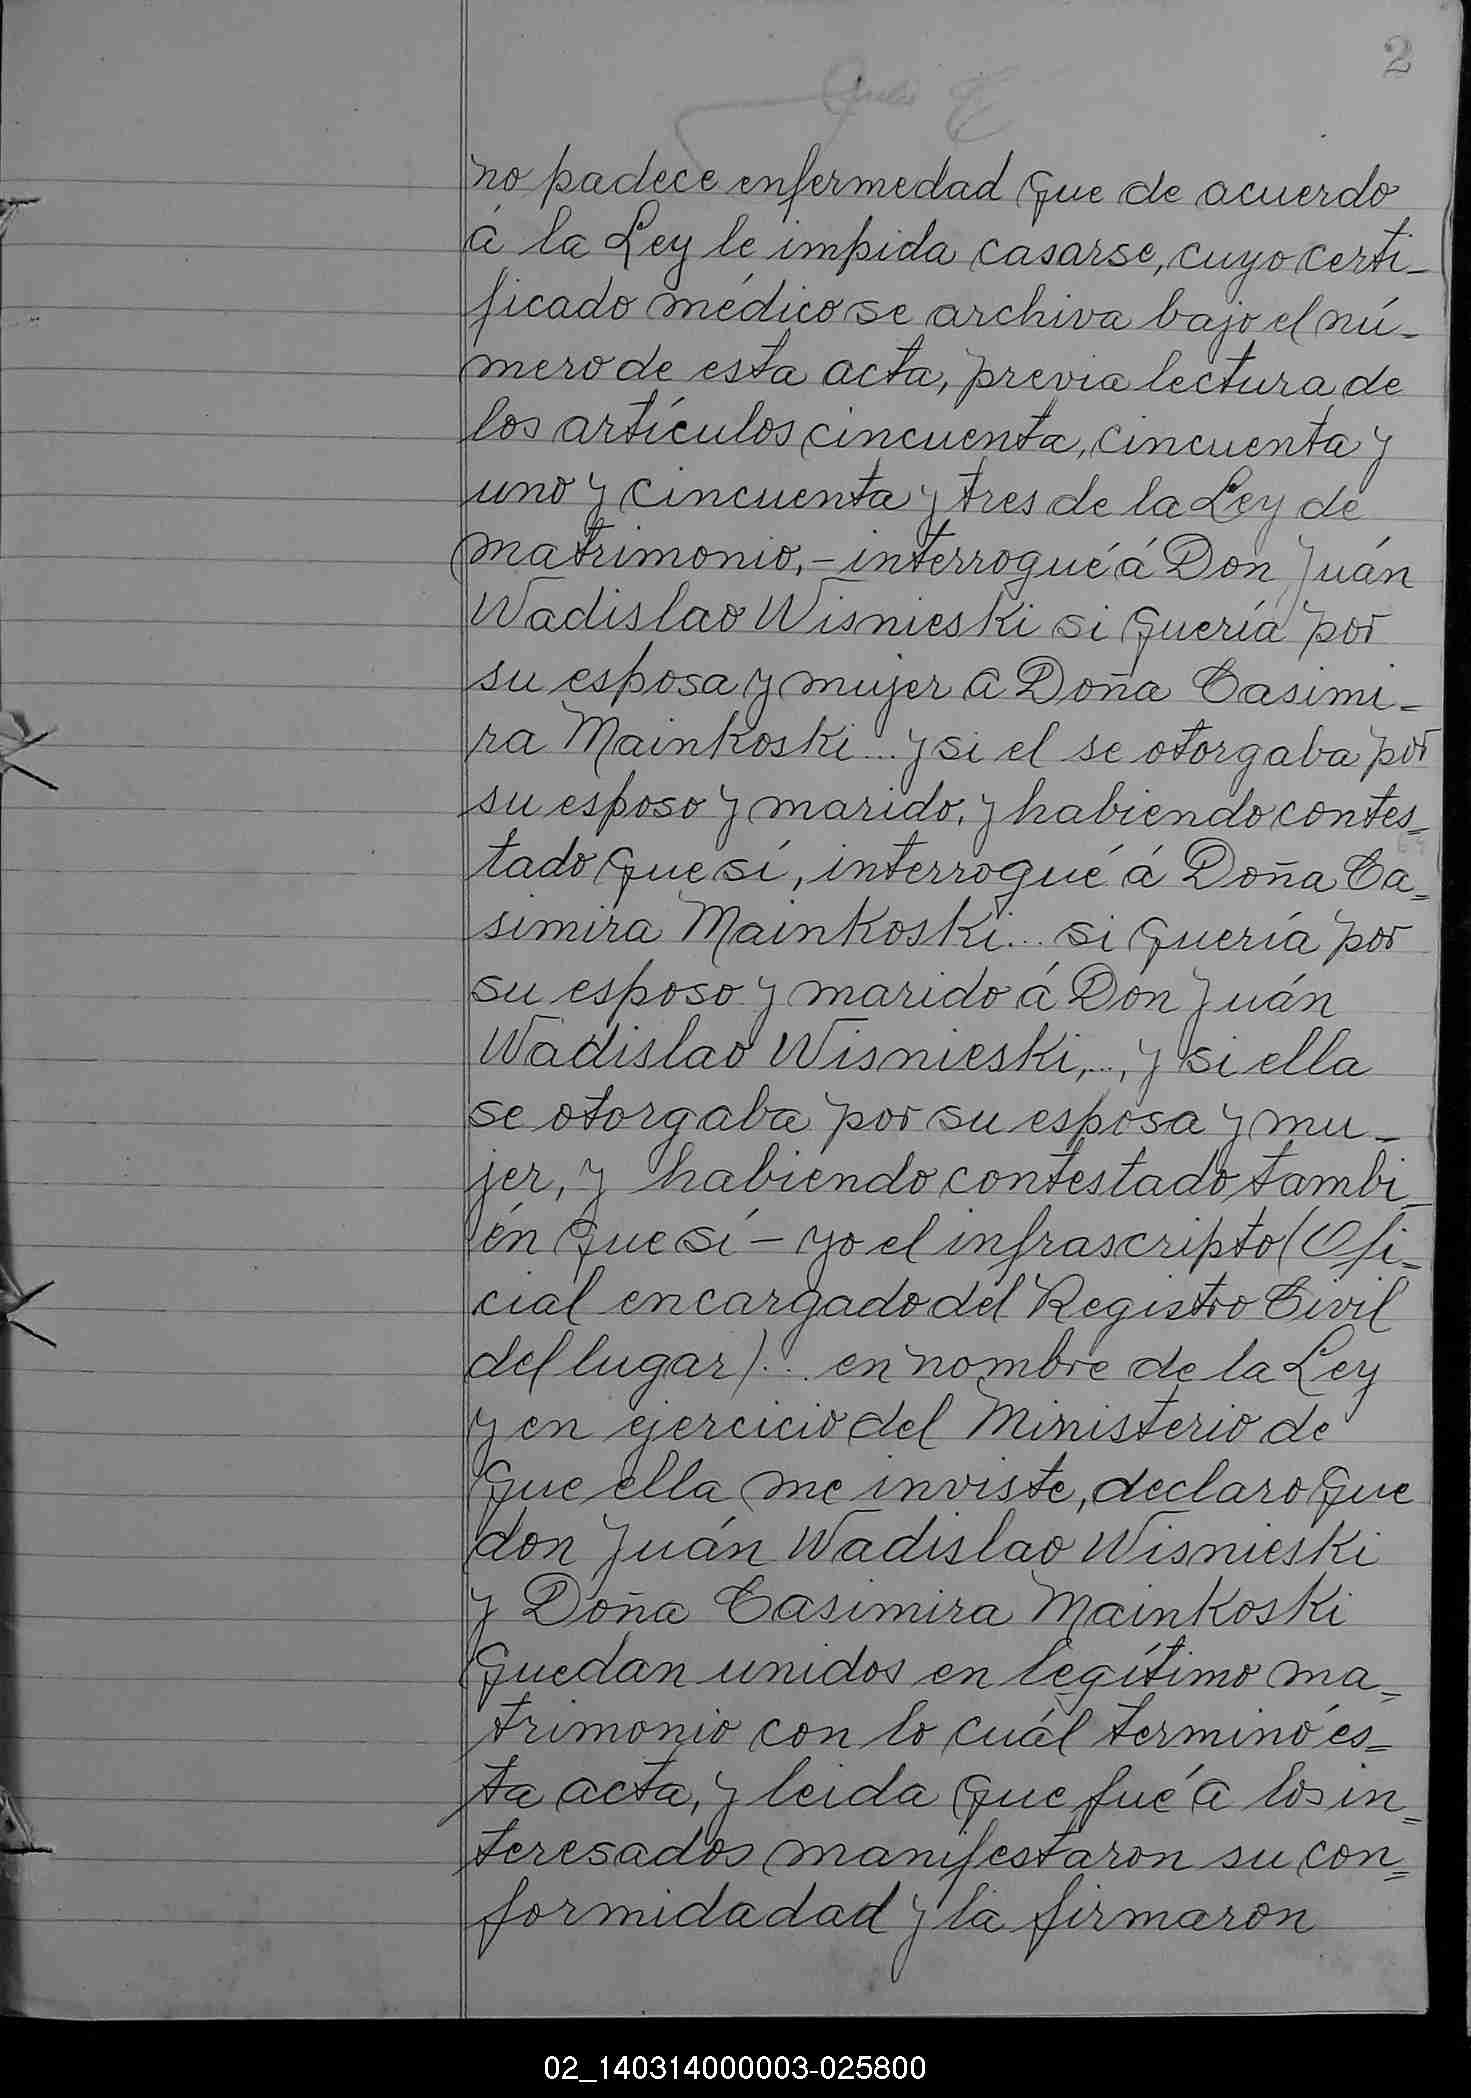 2
no padece enfermedad que de acuerdo
á la Ley le impida casarse, cuyo certi-
ficado médico se archiva bajo el nú-
mero de esta acta, previa lectura de
los artículos cincuenta, cincuenta y
uno y cincuenta y tres de la Ley de
matrimonio,- interrogué á Don Juán
Wadislao Wisnieski si quería por
su esposa y mujer a Doña Casimi-
ra Mainkoski... y si el se otorgaba por
su esposo y marido, y habiendo contes=
tado que sí, interrogué á Doña Ca=
simira Mainkoski... si quería por
su esposo y marido á Don Juán
Wadislao Wisnieski,..., y si ella
se otorgaba por su esposa y mu-
jer, y habiendo contestado tambi-
én que sí - yo el infrascripto (Ofi=
cial encargado del Registro Civil
del lugar)... en nombre de la Ley
y en ejercicio del Ministerio de
que ella me inviste, declaro que
don Juán Wadislao Wisnieski
y Doña Casimira Mainkoski
quedan unidos en legítimo ma=
trimonio con lo cuál terminó és=
ta acta, y leida que fué a los in=
teresados manifestaron su con=
formidadad y la firmaron
02_140314000003-025800